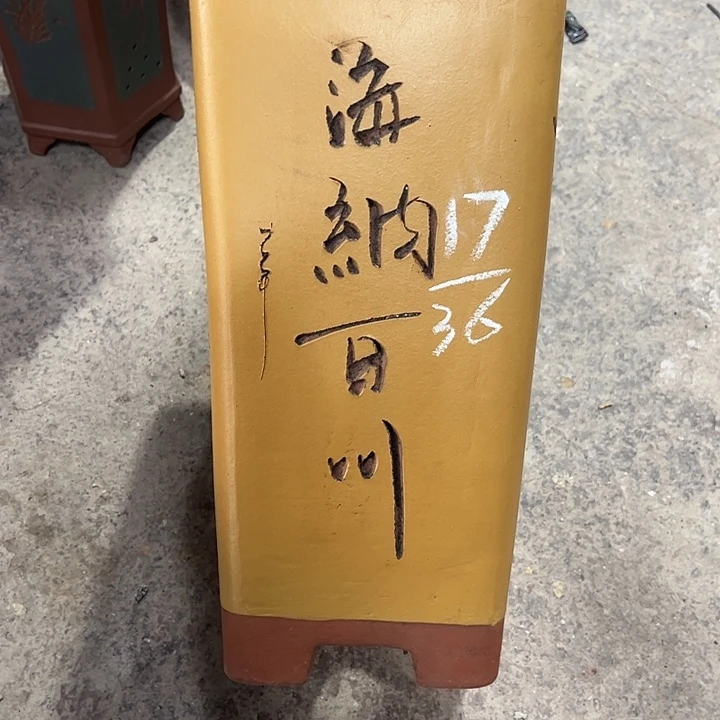 海納百川
17
36